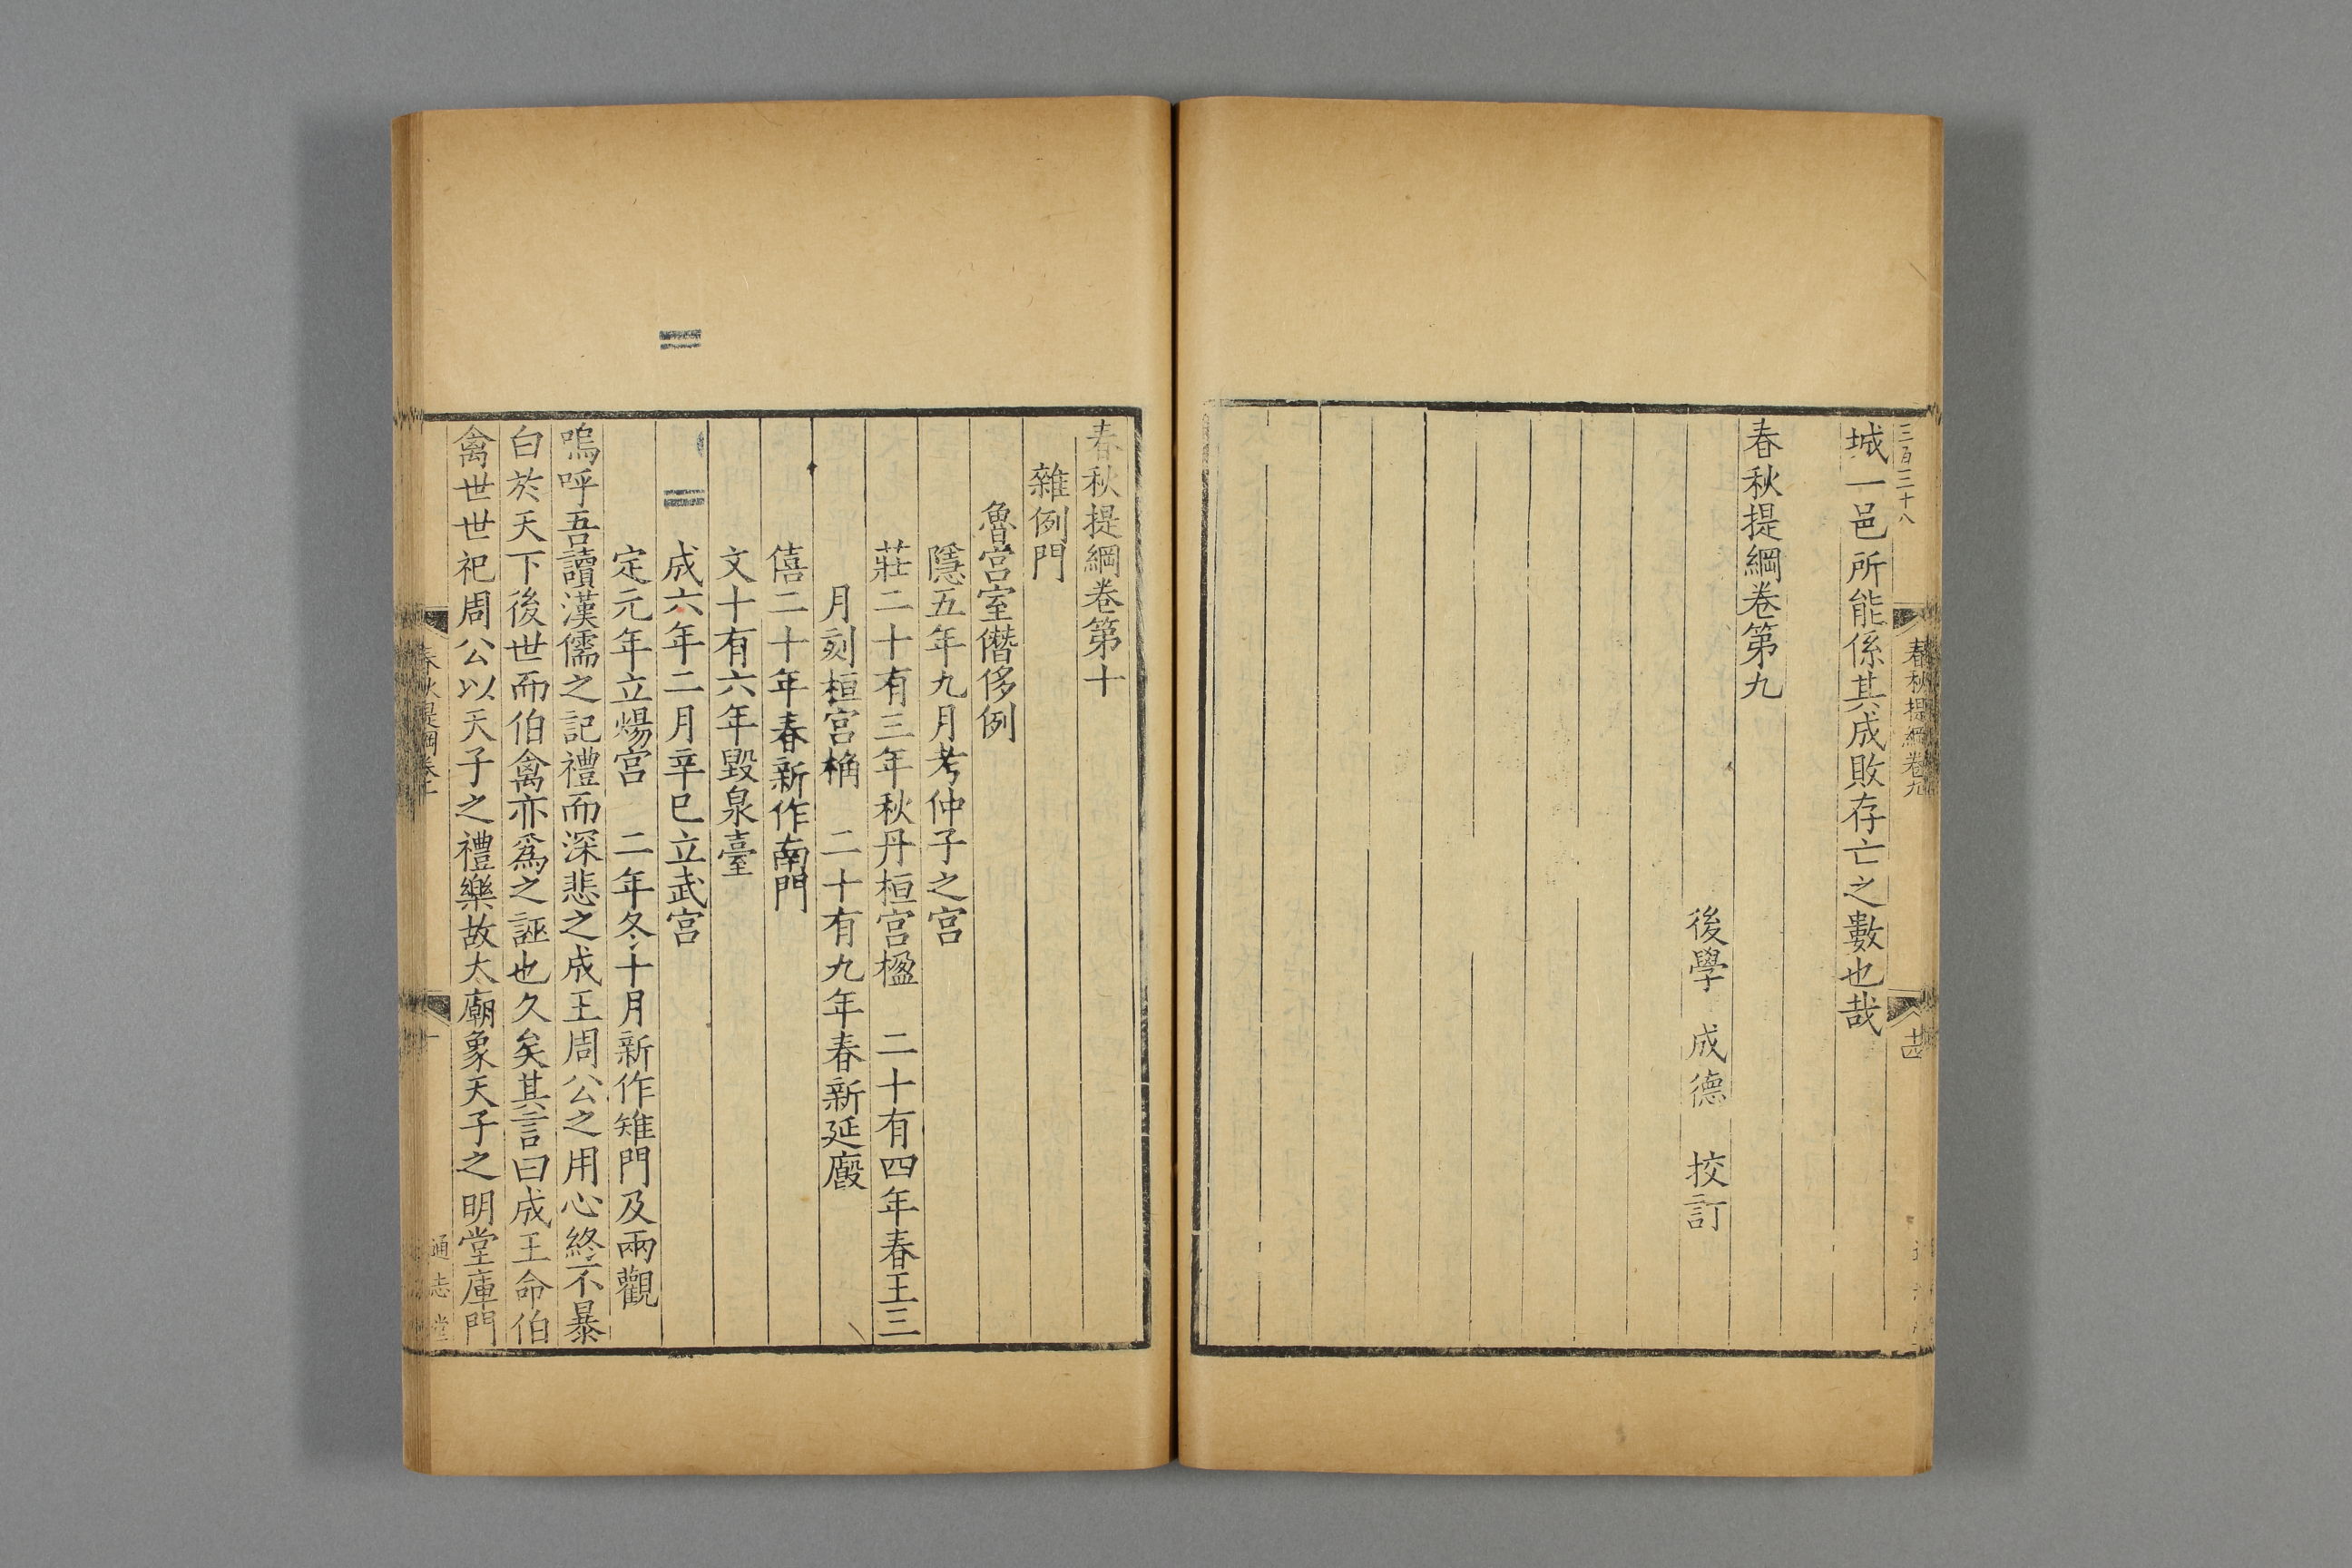 三百二十八
春秋提綱卷九
十四
城一邑所能係其成敗存亡之數也哉
春秋提綱卷第九
後學 成德 挍訂
春秋提綱卷第十
雜例門
魯宫室僭侈例
隱五年九月考仲子之宫
莊二十有三年秋丹桓宫楹 二十有四年春王三
月刻桓宫桷 二十有九年春新延廄
僖二十年春新作南門
文十有六年毀泉臺
成六年二月辛巳立武宫
定元年立煬宫 二年冬十月新作雉門及兩觀
嗚呼吾讀漢儒之記禮而深悲之成王周公之用心終不暴
白於天下後世而伯禽亦爲之誣也久矣其言曰成王命伯
禽世世祀周公以天子之禮樂故太廟象天子之明堂庫門
通志堂